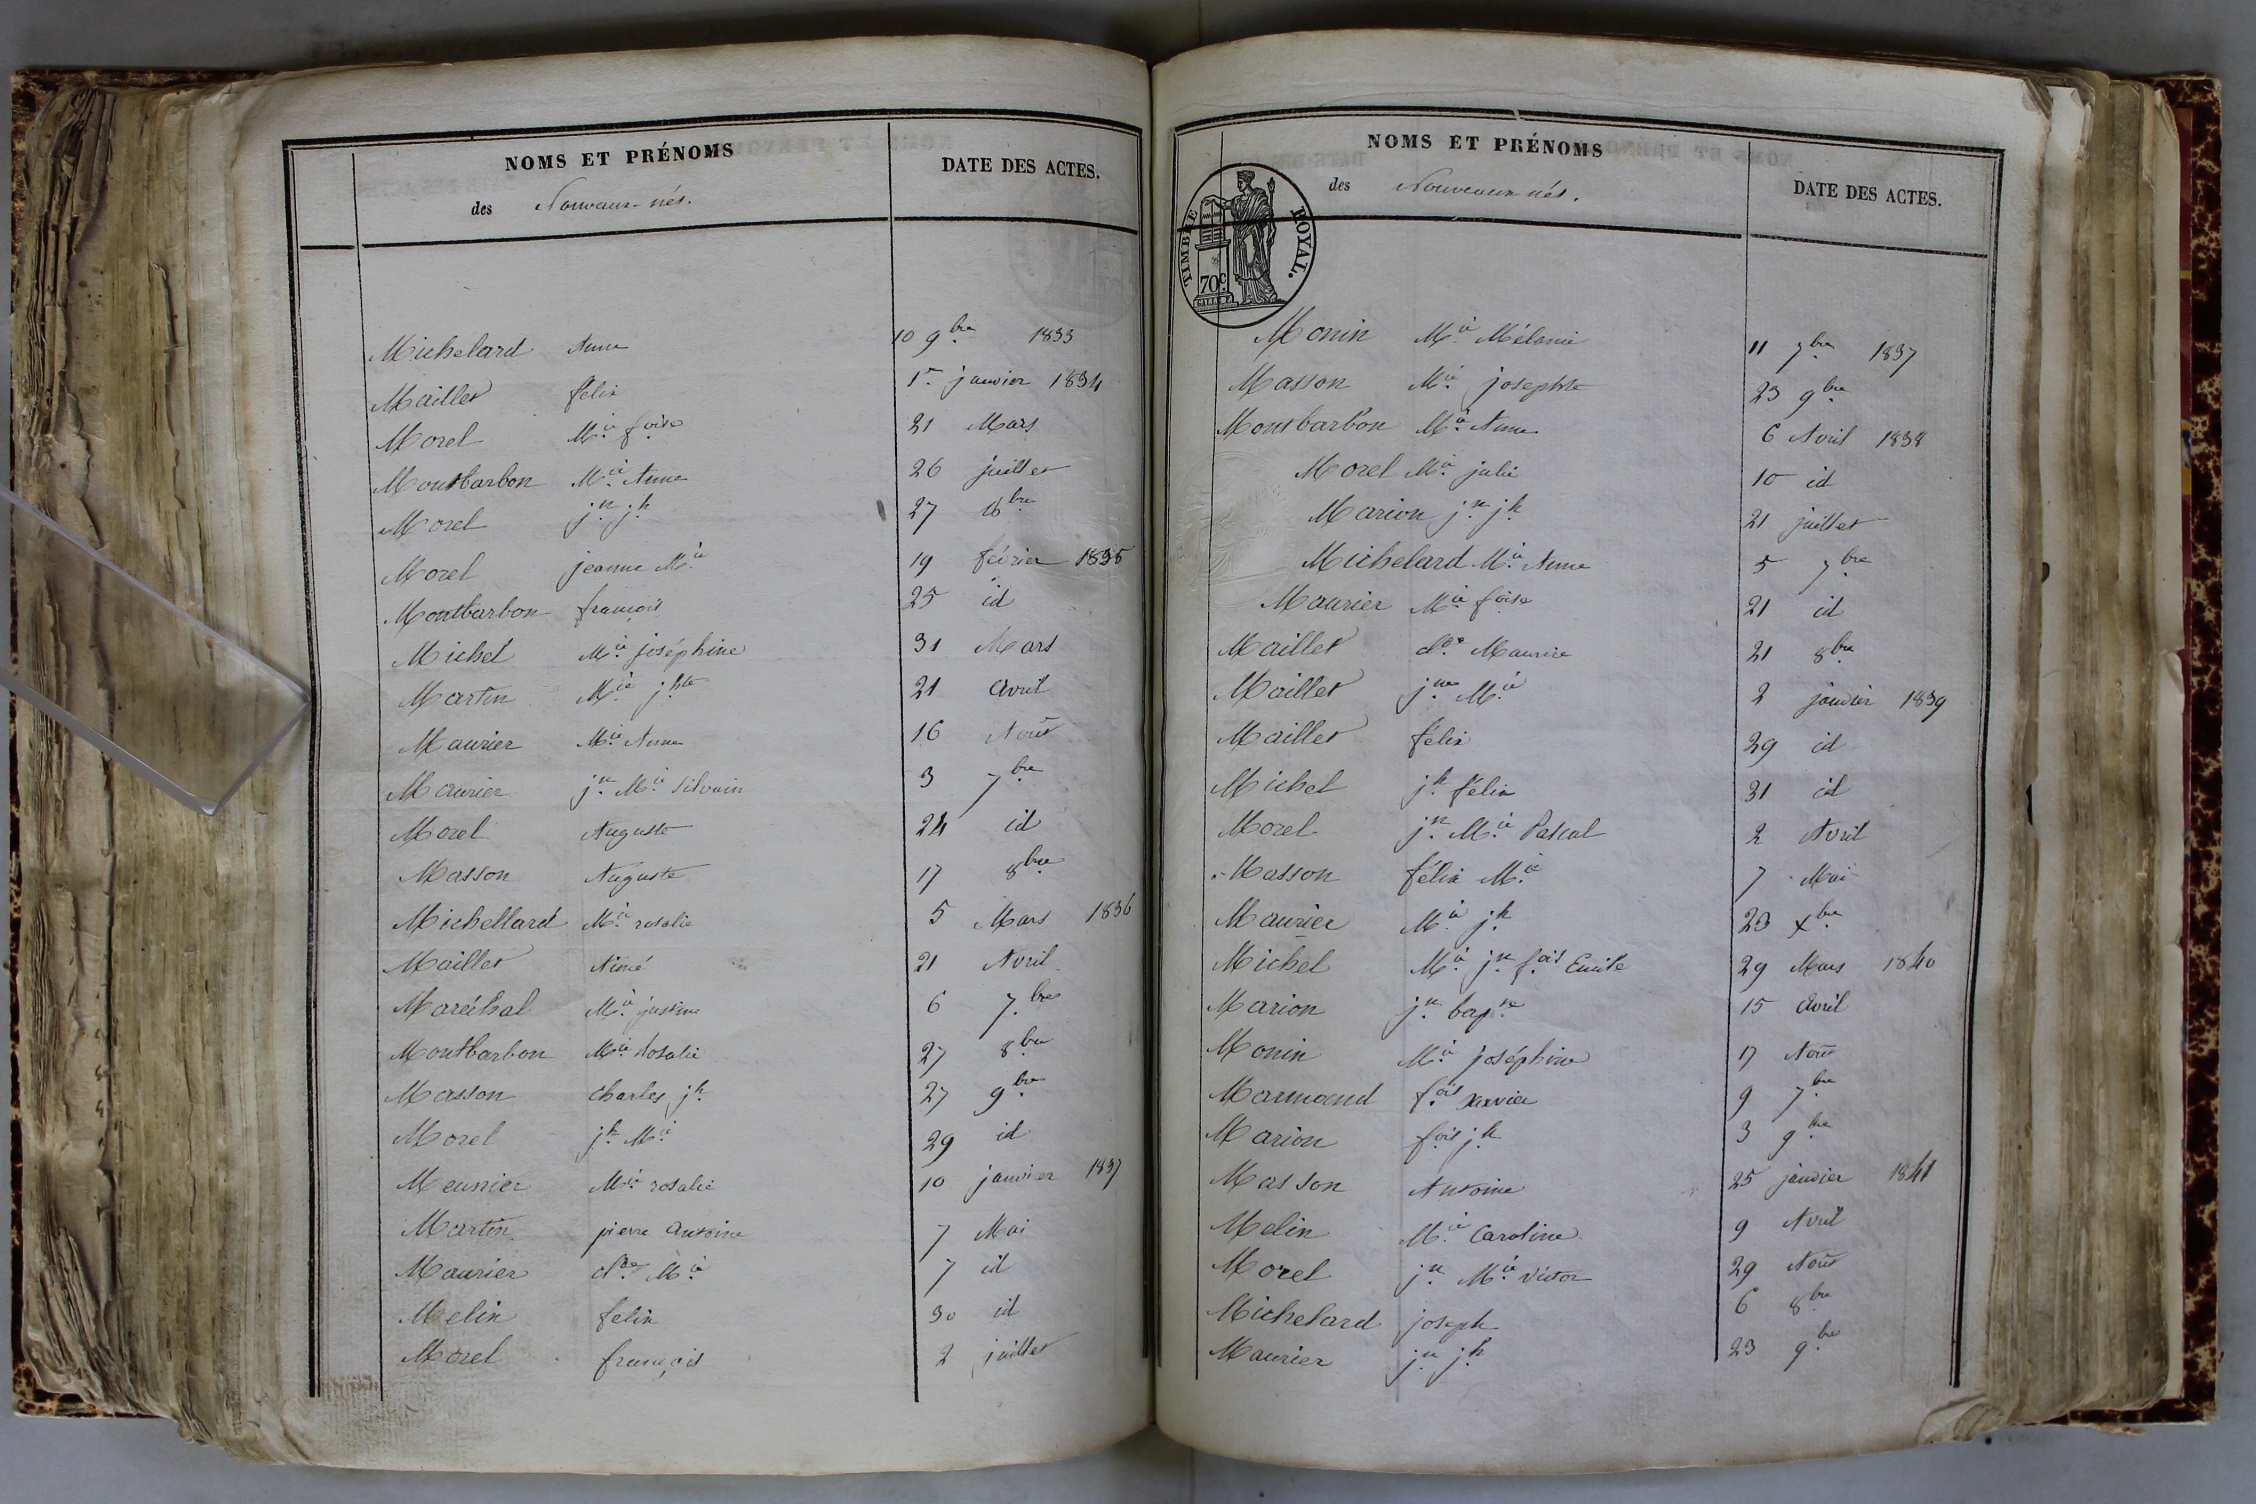 NOMS ET PRÉNOMS
des Nouveaux-nés.
DATE DES ACTES.
Michelard Anne 10 9bre 1833
Maillet félix 1r janvier 1834
Morel Mie foise 21 Mars
Montbarbon Mie Anne 26 juillet
Morel jn jh 27 bre
Morel jeanne Mie 19 février 1835
Montbarbon françois 25 id
Michel Mie joséphine 31 Mars
Martin Mie jhte 21 avril
Maurier Mie Anne 16 Août
Maurier jn Mie Silvain 3 7bre
Morel Auguste 24 id
Masson Auguste 17 8bre
Michellard Mie rosalie 5 Mars 1836
Maillet Aimé 21 Avril
Maréchal Mie justine 6 7bre
Montbarbon Mie Rosalie 27 8bre
Masson charles jh 27 9bre
Morel jh Mie 29 id
Meunier Mie rosalie 10 janvier 1837
Martin pierre antoine 7 Mai
Maurier Mie 7 id
Melin felix 30 id
Morel françois 2 juillet
NOMS ET PRÉNOMS
des Nouveaux nés.
DATE DES ACTES.
TIMBRE ROYAL.
70c.
Monin Mie Mélanie 11 7bre 1837
Masson Mie josephte 23 9bre
Montbarbon Mie Anne 6 Avril 1838
Morel Mie julie 10 id
Marion jn jh 21 juillet
Michelard Mie Anne 5 7bre
Maurier Mie foise 21 id
Maillet Maurice 21 8bre
Maillet jne Mie 2 janvier 1839
Maillet félix 29 id
Michel jh félix 31 id
Morel jn Mie Pascal 2 Avril
Masson félix Mie 7 Mai
Maurier Mie jh 23 xbre
Michel Mie jn fois Emile 29 Mars 1840
Marion jn bapte 15 avril
Monin Mie joséphine 17 Août
Marmand fois Xavier 9 7bre
Marion fois jh 3 9bre
Masson Antoine 25 janvier 1841
Melin Mie Caroline 9 Avril
Morel jn Mie Victor 29 Août
Michelard joseph 6 8bre
Maurier jn jh 23 9bre